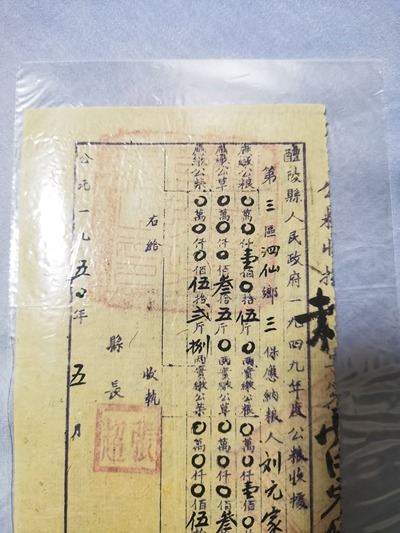 醴陵縣人民政府一九四九年度公粮收據
第三區泗仙鄉三保應納粮人刘元家
應繳公粮〇萬〇仟壹佰〇拾伍斤〇両實繳公粮〇萬〇仟壹佰
應繳公草〇萬〇仟〇佰叁拾伍斤〇両實繳公草〇萬〇仟〇佰叁
應繳公柴〇萬〇仟〇佰伍拾贰斤捌両實繳公柴〇萬〇仟〇佰伍
右給 收執
縣長 張超
公元一九五〇年五月